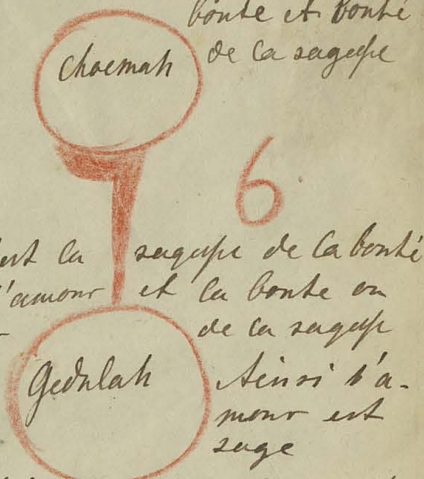 bonte et bonté
chocmah de la sagesse
6
est la sagesse de la bonté
l'amour et la bonte ou
de la sagesse
Gedulah Ainsi l'a-
mour est
sage